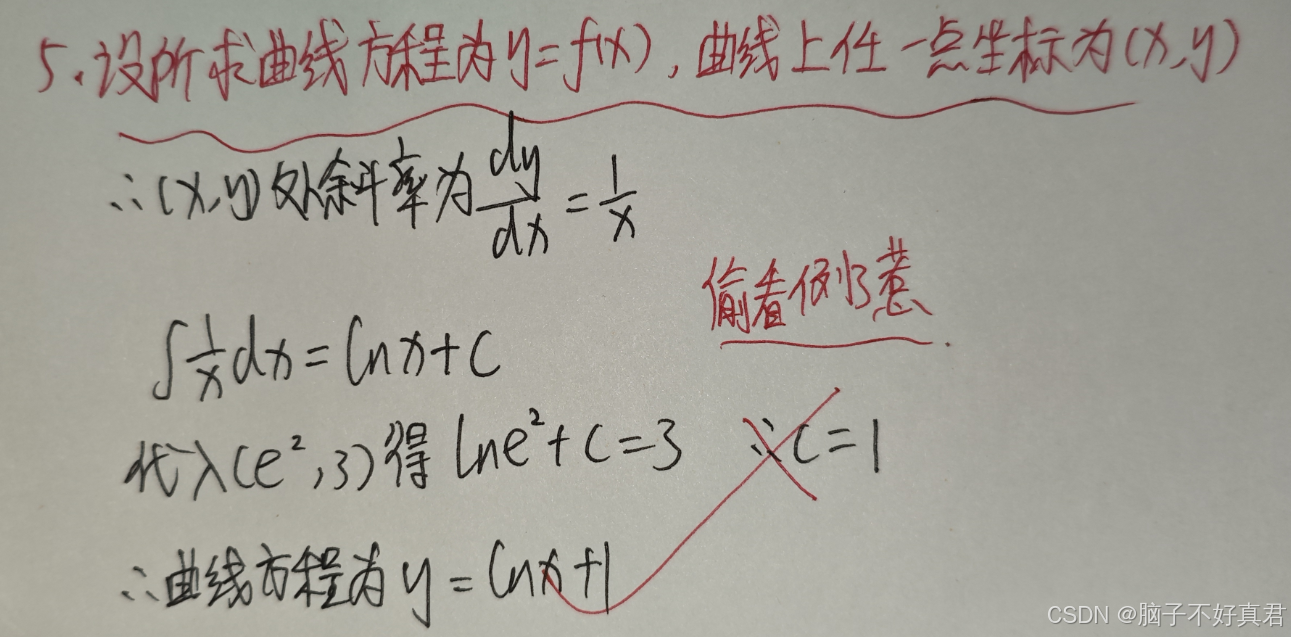 5.设所求曲线方程为y=f(x),曲线上任一点坐标为(x,y)
∴(x,y)处斜率为dy/dx=1/x
偷看例13惹.
∫1/x dx=lnx+C
代入(e²,3)得 lne²+C=3 ∴C=1
∴曲线方程为y=lnx+1
CSDN @脑子不好真君